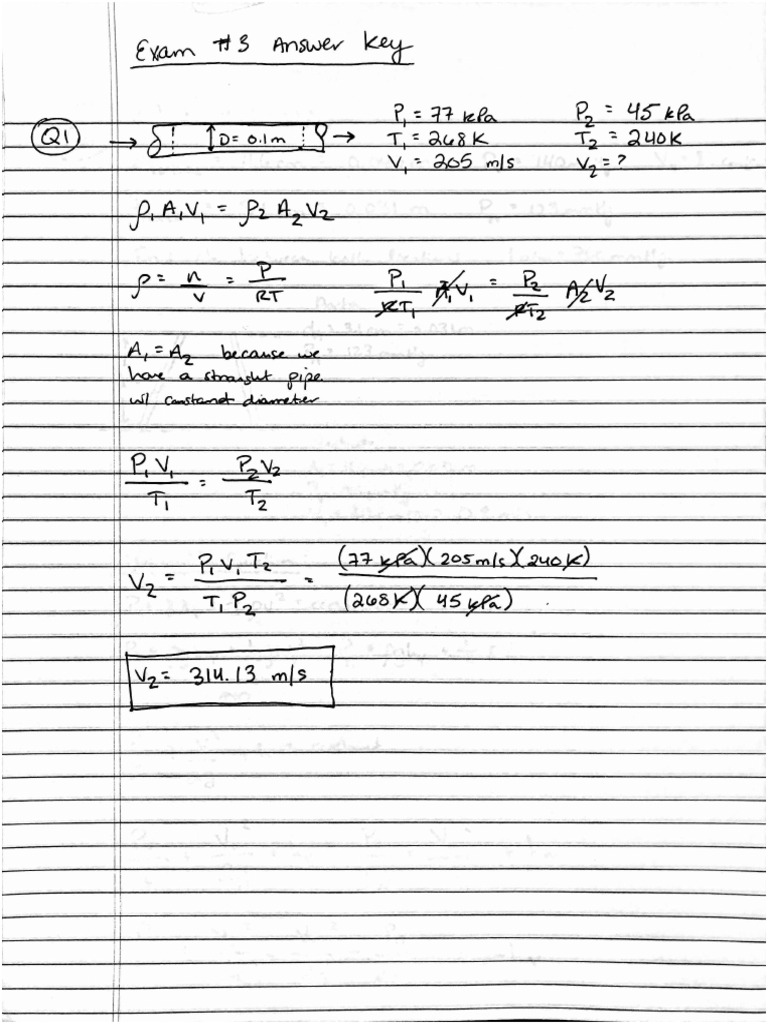 Exam #3 Answer Key
Q1
D= 0.1m
P₁ = 77 kPa
T₁ = 268K
V₁ = 205 m/s
P₂ = 45 kPa
T₂ = 240K
V₂ = ?
ρ₁ A₁ V₁ = ρ₂ A₂ V₂
ρ = n/v = P/RT
P₁/RT₁ A₁V₁ = P₂/RT₂ A₂V₂
A₁ = A₂ because we
have a straight pipe
w/ constant diameter
P₁V₁/T₁ = P₂V₂/T₂
V₂ = P₁V₁T₂/T₁P₂ = (77 kPa)(205 m/s)(240K)/(268K)(45 kPa)
V₂ = 314.13 m/s